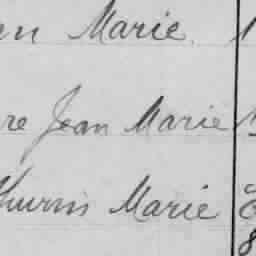 en Marie
re Jean Marie
thurin Marie